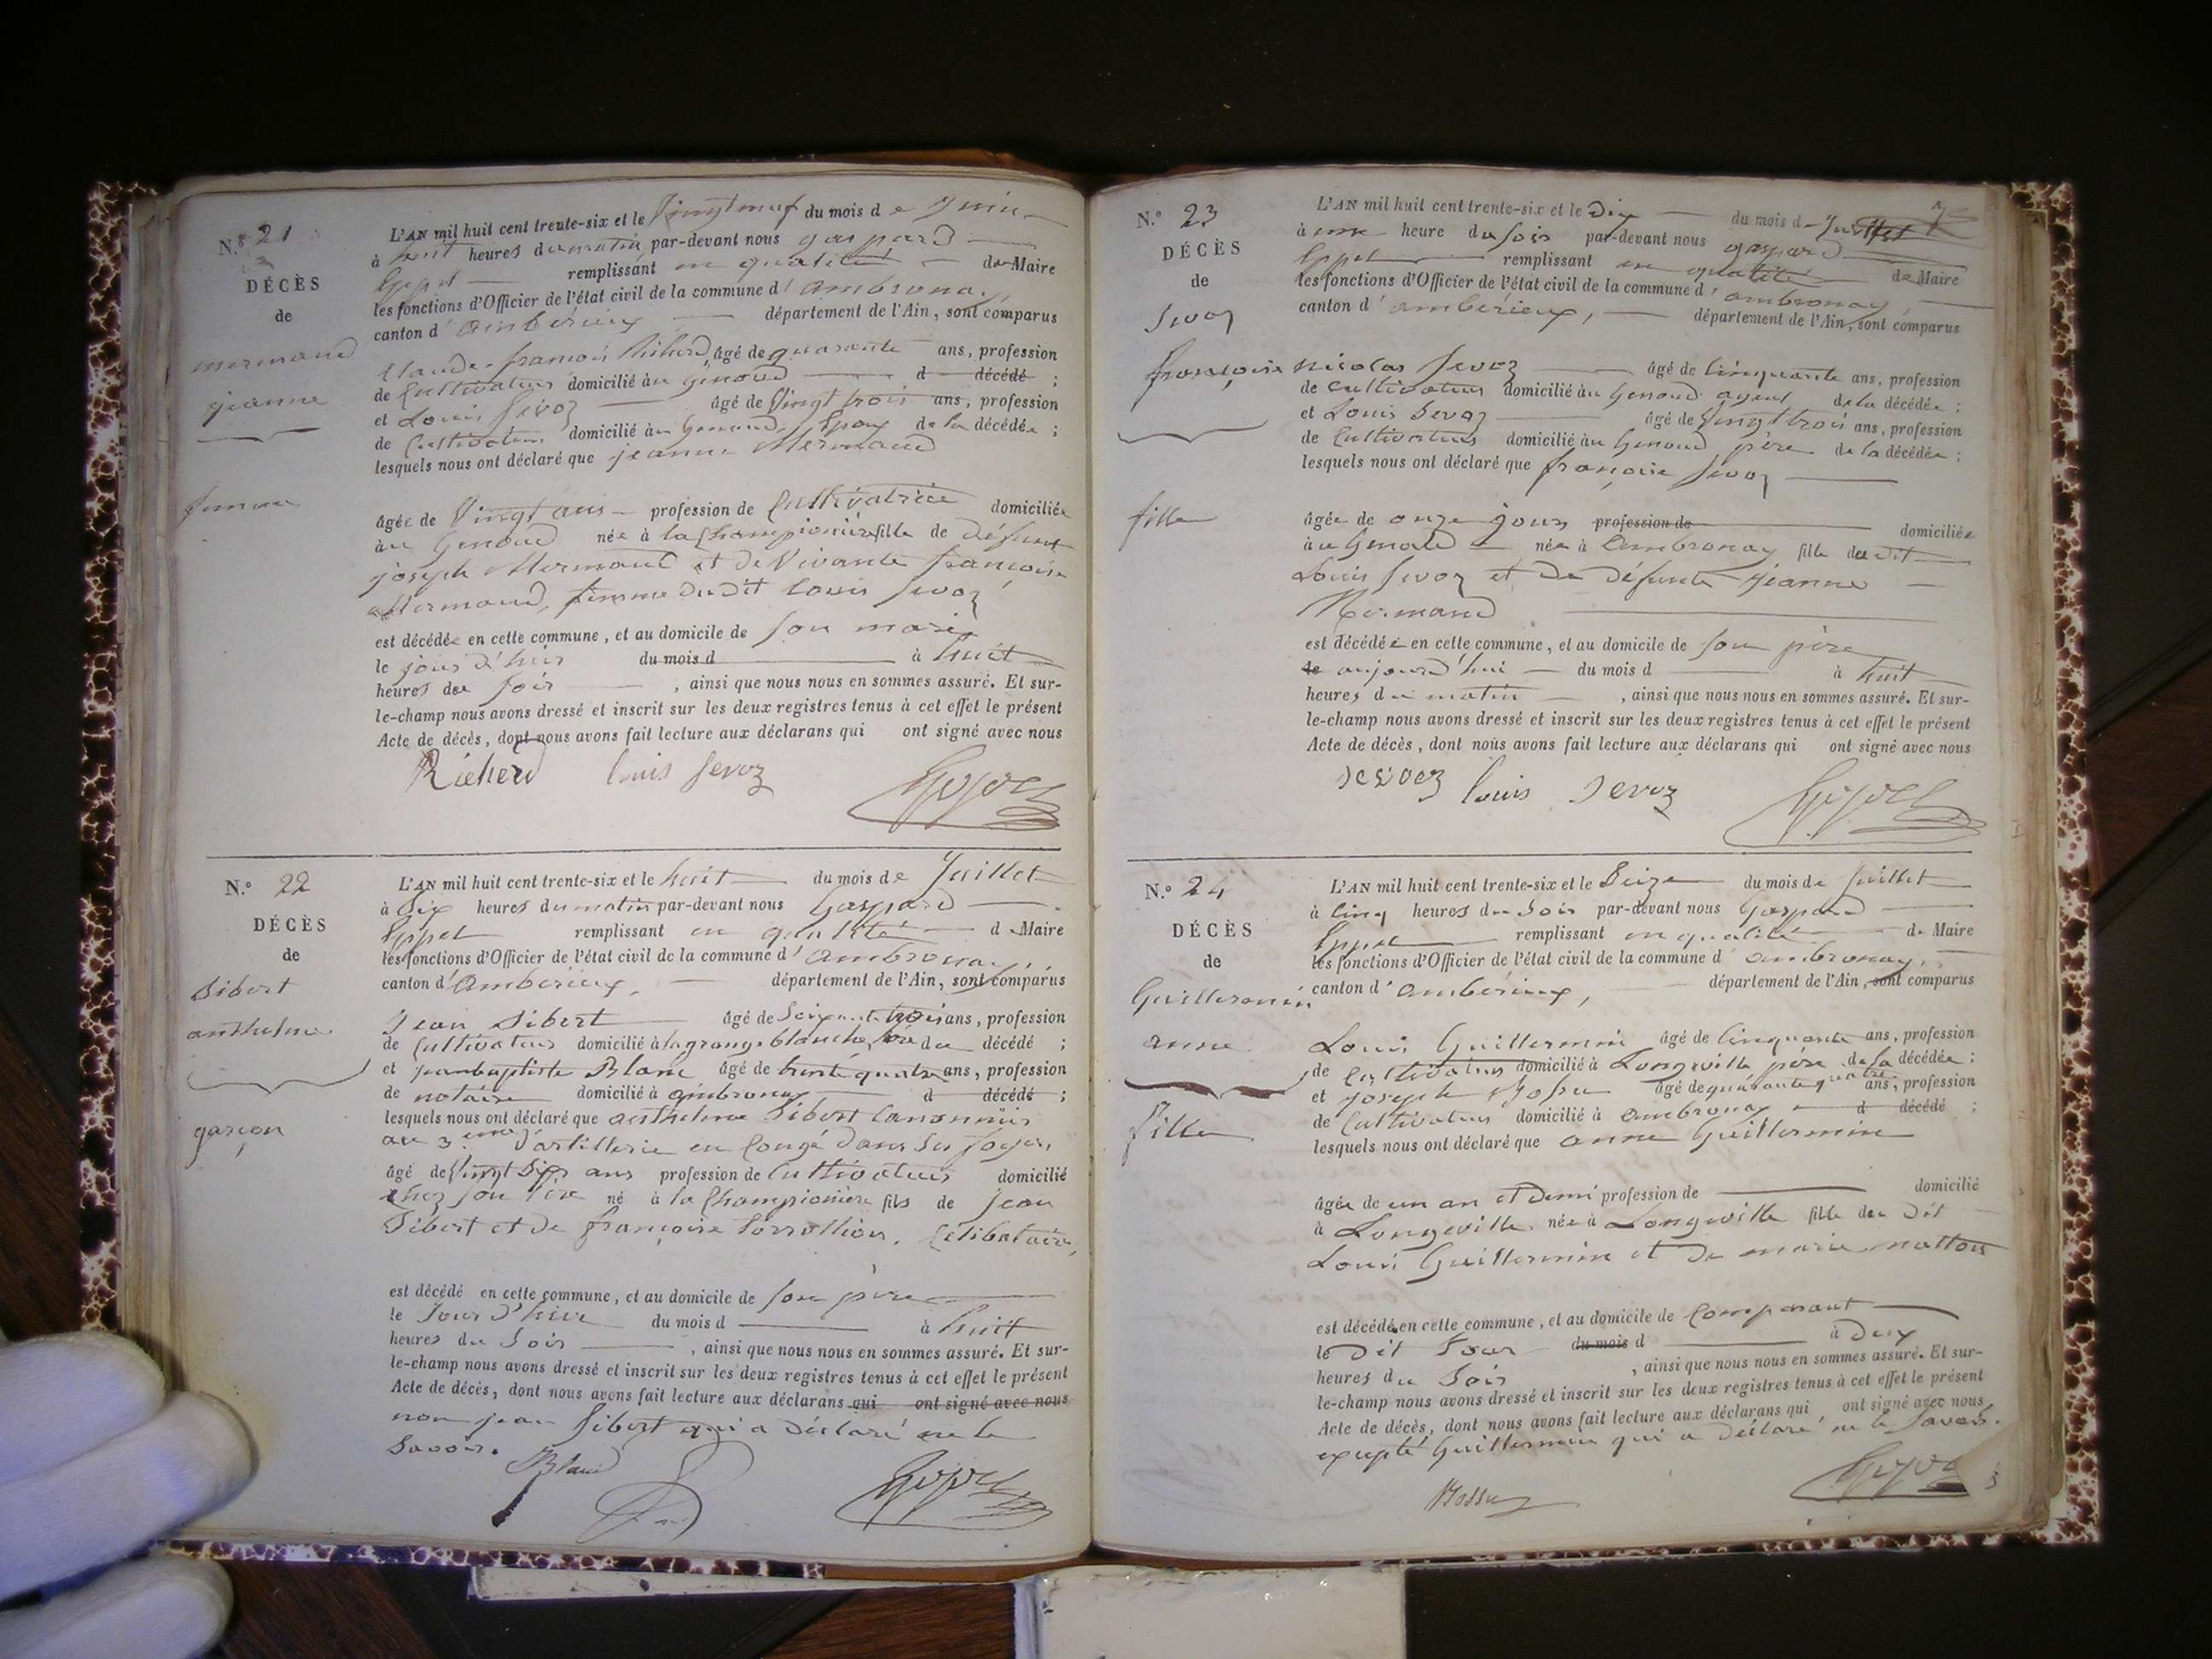 N.º 21
DÉCÈS
de
mermand
jeanne
femme
L'AN mil huit cent trente-six et le Vingt neuf du mois de Juin
à huit heures du matin par-devant nous gaspard
remplissant en qualité de Maire
les fonctions d'Officier de l'état civil de la commune d'ambronay,
canton d'ambérieux département de l'Ain, sont comparus
Claude françois Richerd âgé de quarante ans, profession
de Cultivateur domicilié au genoud d décédé ;
et Louis Sevoz âgé de Vingt trois ans, profession
de Cultivateur domicilié au Genoud, Epoux de la décédée ;
lesquels nous ont déclaré que jeanne Mermand
âgée de Vingt ans profession de Cultivatrice domiciliée
au Genoud née à la Championière fille de défunt
joseph Mermand et de Vivante françoise
Mermand, femme du dit Louis Sevoz
est décédée en cette commune, et au domicile de son mari
le jour d'hier du mois d à huit
heures du soir , ainsi que nous nous en sommes assuré. Et sur-
le-champ nous avons dressé et inscrit sur les deux registres tenus à cet effet le présent
Acte de décès, dont nous avons fait lecture aux déclarans qui ont signé avec nous
Richerd louis Sevoz
N.º 22
DÉCÈS
de
Sibert
anthelme
garçon
L'AN mil huit cent trente-six et le huit du mois de Juillet
à dix heures du matin par-devant nous Gaspard
remplissant en qualité de Maire
les fonctions d'Officier de l'état civil de la commune d'ambronay,
canton d'ambérieux, département de l'Ain, sont comparus
Jean Sibert âgé de Soixante trois ans, profession
de Cultivateur domicilié à la grange blanche, père du décédé ;
et jeanbaptiste Blanc âgé de trente quatre ans, profession
de notaire domicilié à ambronay d décédé ;
lesquels nous ont déclaré que anthelme Sibert Canonnier
au 3eme d'artillerie en Congé dans ses foyers,
âgé de Vingt six ans profession de Cultivateur domicilié
chez son Père né à la Championière fils de Jean
Sibert et de françoise Célibataire,
est décédé en cette commune, et au domicile de son père
le Jour d'hier du mois d à huit
heures du Soir , ainsi que nous nous en sommes assuré. Et sur-
le-champ nous avons dressé et inscrit sur les deux registres tenus à cet effet le présent
Acte de décès, dont nous avons fait lecture aux déclarans qui ont signé avec nous
non jean Sibert qui a déclaré ne le
Savoir.
Blanc
N.º 23
DÉCÈS
de
Sevoz
françoise
fille
L'AN mil huit cent trente-six et le Dix du mois de Juillet
à une heure du soir par-devant nous gaspard
remplissant en qualité de Maire
les fonctions d'Officier de l'état civil de la commune d'ambronay
canton d'ambérieux, département de l'Ain, sont comparus
nicolas Sevoz âgé de Cinquante ans, profession
de cultivateur domicilié au Genoud ayeul de la décédée ;
et Louis Sevoz âgé de Vingt trois ans, profession
de Cultivateur domicilié au Genoud père de la décédée ;
lesquels nous ont déclaré que françoise Sevoz
âgée de onze jours profession de domiciliée
au Genoud née à Ambronay fille du dit
Louis Sevoz et de défunte Jeanne
Mermand
est décédée en cette commune, et au domicile de son père
le aujourd'hui du mois d à huit
heures du matin , ainsi que nous nous en sommes assuré. Et sur-
le-champ nous avons dressé et inscrit sur les deux registres tenus à cet effet le présent
Acte de décès, dont nous avons fait lecture aux déclarans qui ont signé avec nous
sevoz louis sevoz
N.º 24
DÉCÈS
de
Guillermin
anne
fille
L'AN mil huit cent trente-six et le Seize du mois de Juillet
à Cinq heures du Soir par-devant nous Gaspard
remplissant en qualité de Maire
les fonctions d'Officier de l'état civil de la commune d'ambronay,
canton d'ambérieux, département de l'Ain, sont comparus
Louis Guillermin âgé de Cinquante ans, profession
de Cultivateur domicilié à Longeville père de la décédée ;
et joseph âgé de quarante quatre ans, profession
de Cultivateur domicilié à ambronay d décédé ;
lesquels nous ont déclaré que anne Guillermin
âgée de un an et Demi profession de domicilié
à Longeville née à Longeville fille du Dit
Louis Guillermin et de marie
est décédée en cette commune, et au domicile de Comparant
le Dit Jour du mois d à Deux
heures du Soir , ainsi que nous nous en sommes assuré. Et sur-
le-champ nous avons dressé et inscrit sur les deux registres tenus à cet effet le présent
Acte de décès, dont nous avons fait lecture aux déclarans qui ont signé avec nous
excepté Guillermin qui a déclaré ne le Savoir.